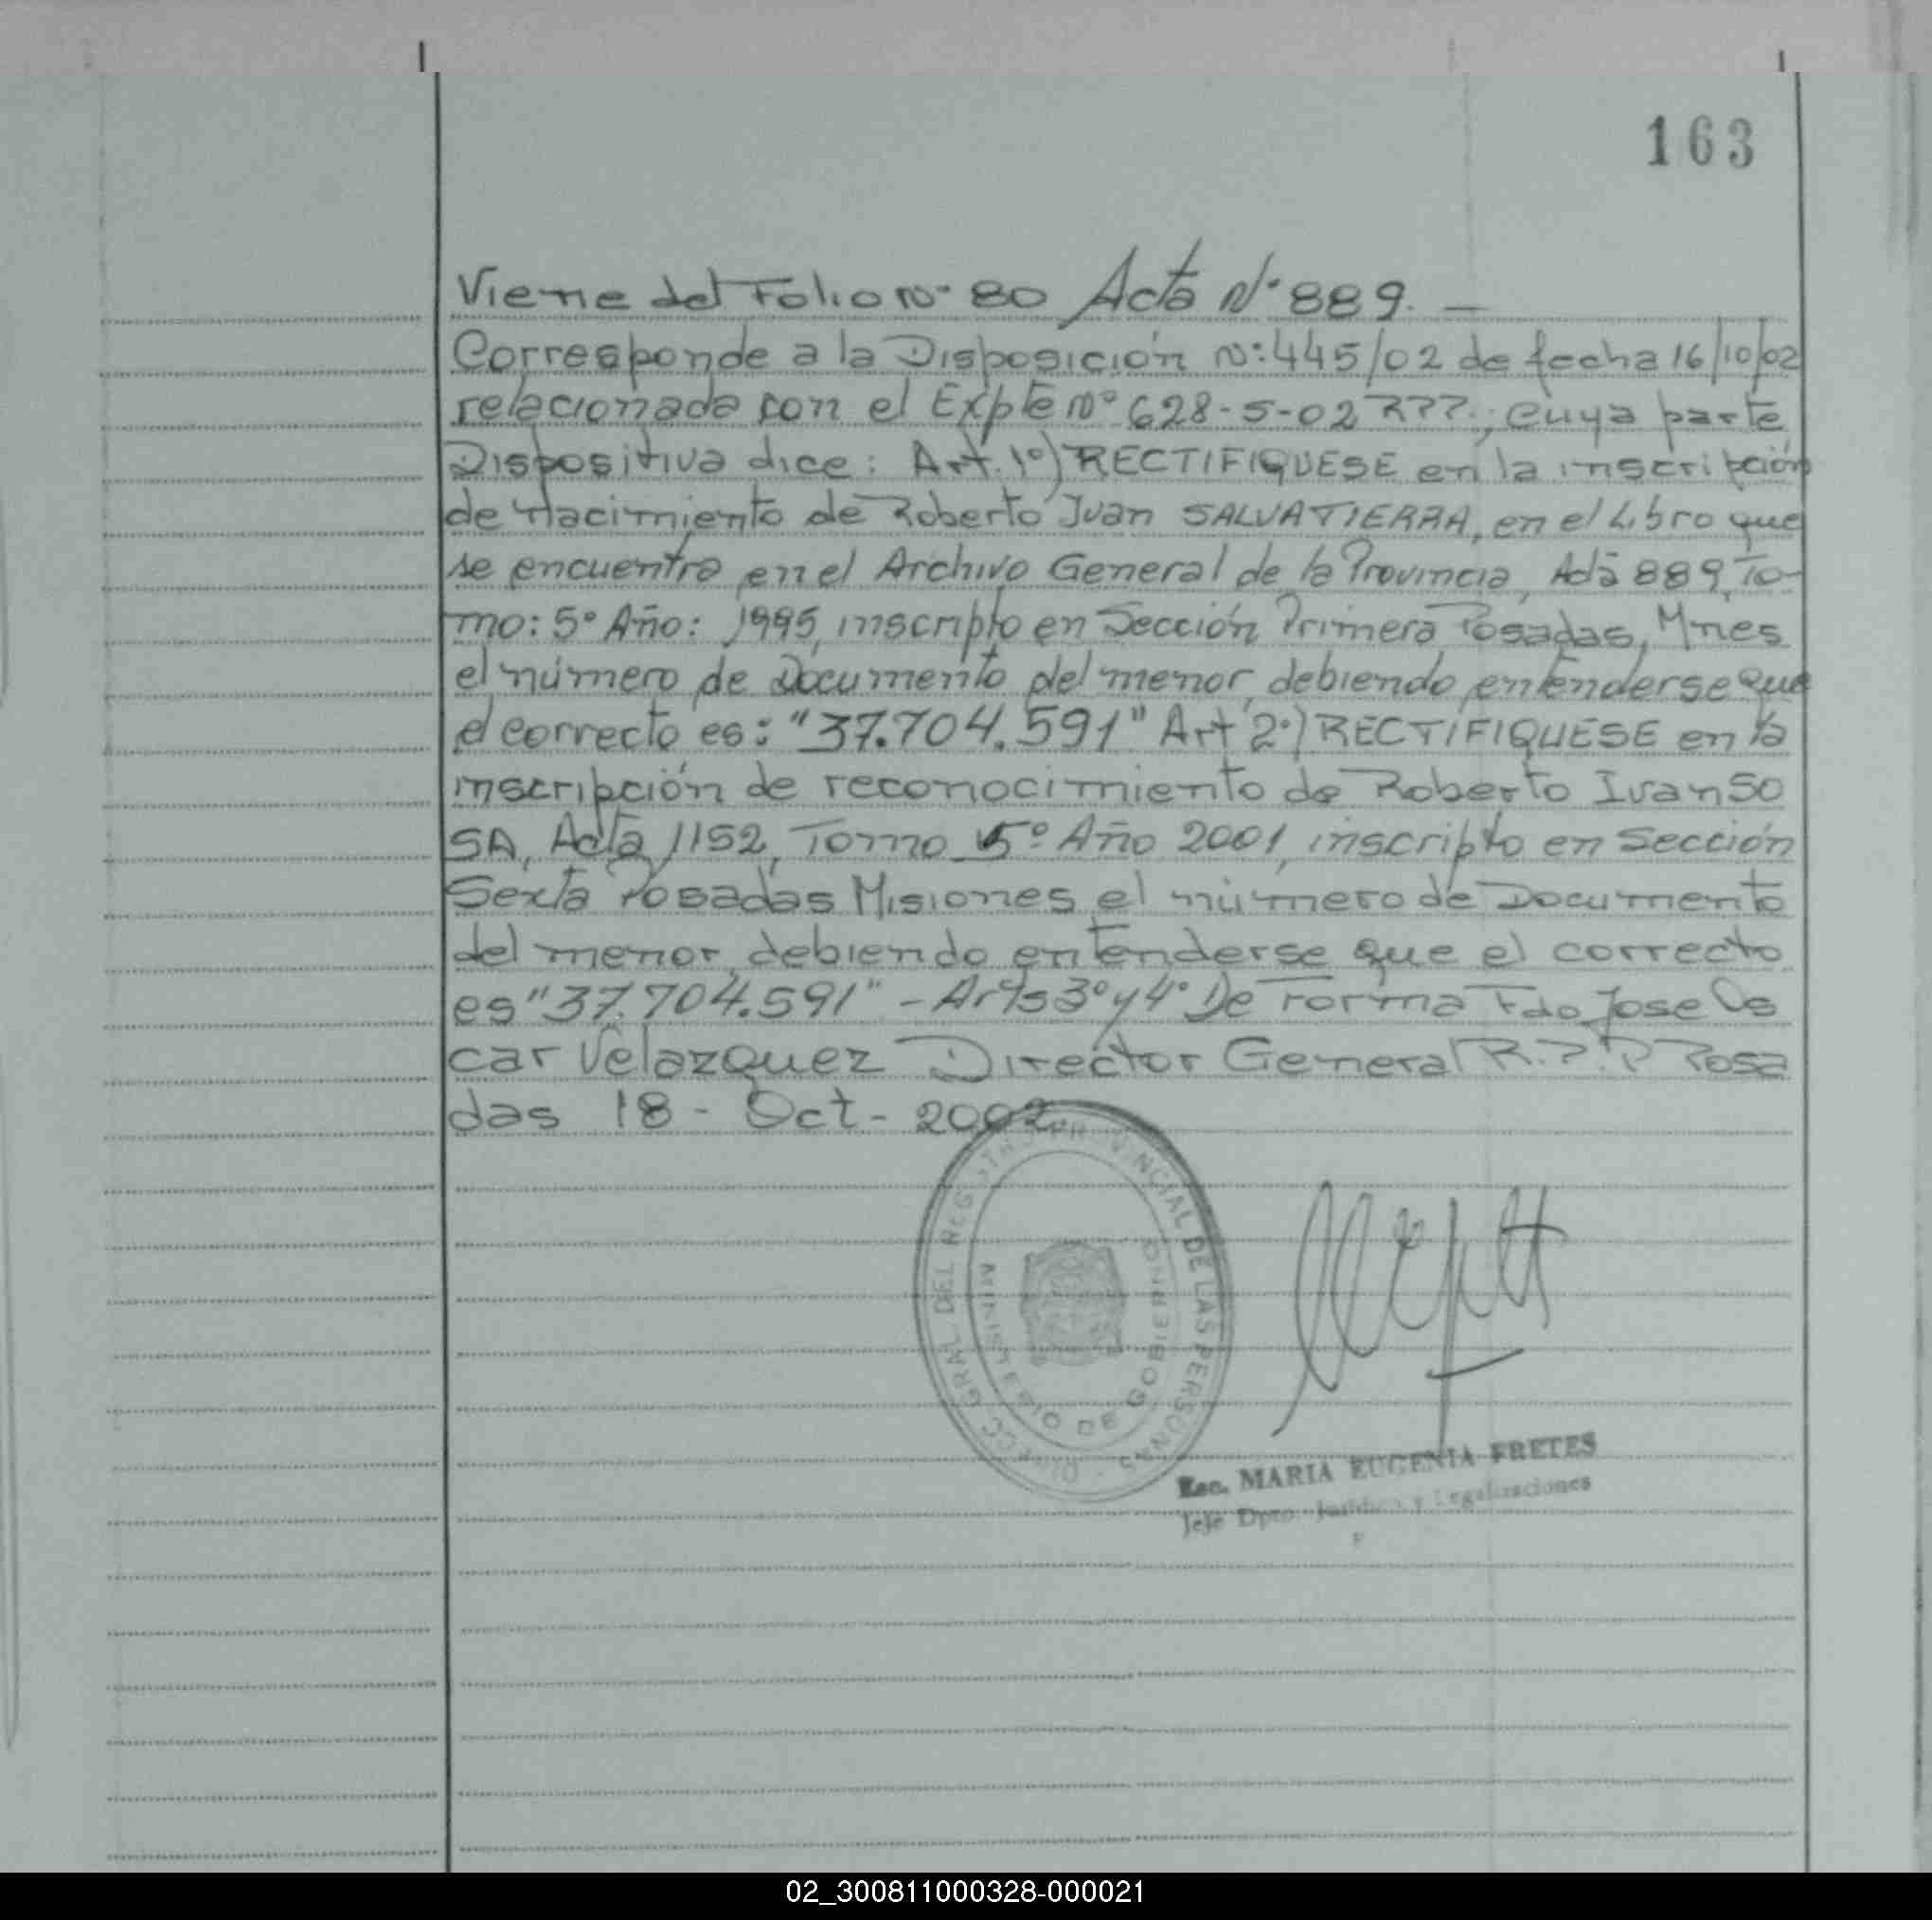 163
Viene del Folio Nº 80 Acta Nº 889. —
Corresponde a la Disposición Nº: 445/02 de fecha 16/10/02
relacionada con el Expte Nº 628-5-02 RPP., cuya parte
Dispositiva dice: Art. 1º) RECTIFIQUESE en la inscripción
de Nacimiento de Roberto Ivan SALVATIERRA, en el Libro que
se encuentra en el Archivo General de la Provincia, Acta 889, To-
mo: 5º Año: 1995, inscripto en Sección Primera Posadas, Mnes
el número de Documento del menor, debiendo entenderse que
el correcto es: "37.704.591" Art 2º) RECTIFIQUESE en la
inscripción de reconocimiento de Roberto Ivan SO
SA, Acta 1152, Tomo 5º Año 2001, inscripto en Sección
Sexta Posadas Misiones el número de Documento
del menor, debiendo entenderse que el correcto
es "37.704.591" - Arts 3º y 4º De Forma Fdo Jose Os
car Velazquez Director General R.P.P Posa
das 18 - Oct - 2002
DIRECC GRAL. DEL REGISTRO PROVINCIAL DE LAS PERSONAS
MINISTERIO DE GOBIERNO
Esc. MARIA EUGENIA FRETES
Jefe Dpto. Jurídico y Legalizaciones
02_300811000328-000021